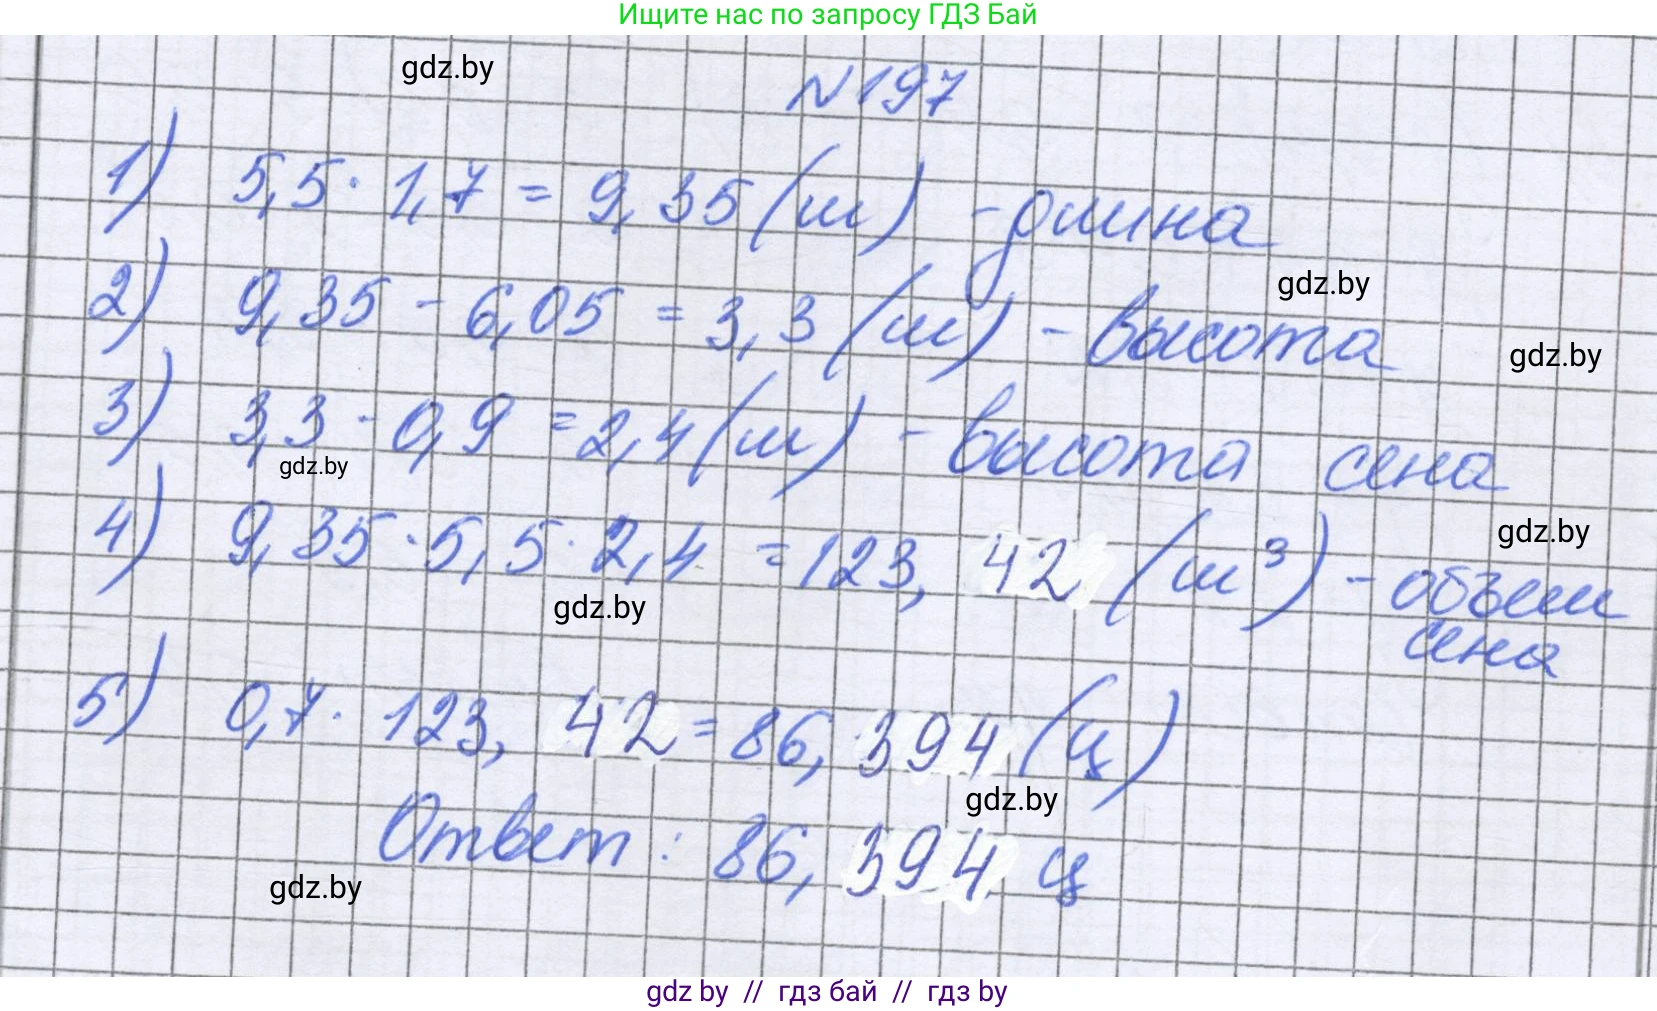 Ищите нас по запросу ГДЗ Бай
gdz.by
N197
1) 5,5 · 1,7 = 9,35 (м) - длина
gdz.by
2) 9,35 - 6,05 = 3,3 (м) - высота
gdz.by
3) 3,3 - 0,9 = 2,4 (м) - высота сена
gdz.by
4) 9,35 · 5,5 · 2,4 = 123,42 (м³) - объем
gdz.by
сена
gdz.by
5) 0,7 · 123,42 = 86,394 (ц)
gdz.by
Ответ: 86,394 ц
gdz.by
gdz by // гдз бай // гдз by